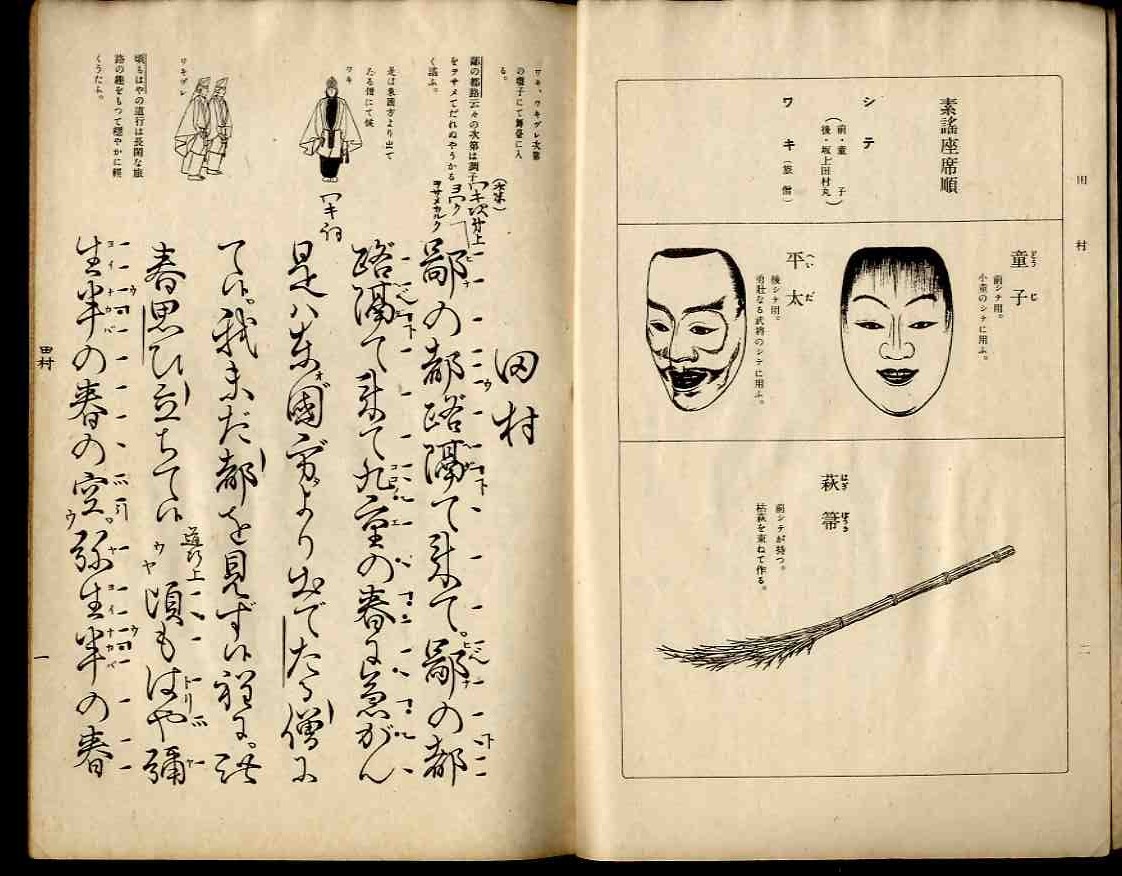 田村
二
素謡座席順
シテ
前・童子
後・坂上田村丸
ワキ(旅僧)
童子
どうじ
前シテ用。
小童のシテに用ふ。
平太
へいだ
後シテ用。
勇壮なる武将のシテに用ふ。
萩箒
はぎばうき
前シテが持つ。
枯萩を束ねて作る。
ワキ、ワキヅレ次第
の囃子にて舞台に入
る。
鄙の都路云々の次第は調子
をヲサメてだれぬやうかる
く謡ふ。
是は東國方より出て
たる僧にて候
ワキ
ワキヅレ
頃もはやの道行は長閑な旅
路の趣をもつて穏やかに軽
くうたふ。
田村
(次第)
ワキ次第上
ヨワク
ヲサメカルク
鄙の都路隔て来て。鄙の都
路隔て来て九重の春に急がん
ワキ詞
是ハ東國方より出でたる僧に
て候。我未だ都を見ず候程に。此
春思ひ立ちて候
道行上
頃もはや彌
生半の春の空。弥生半の春
田村
一